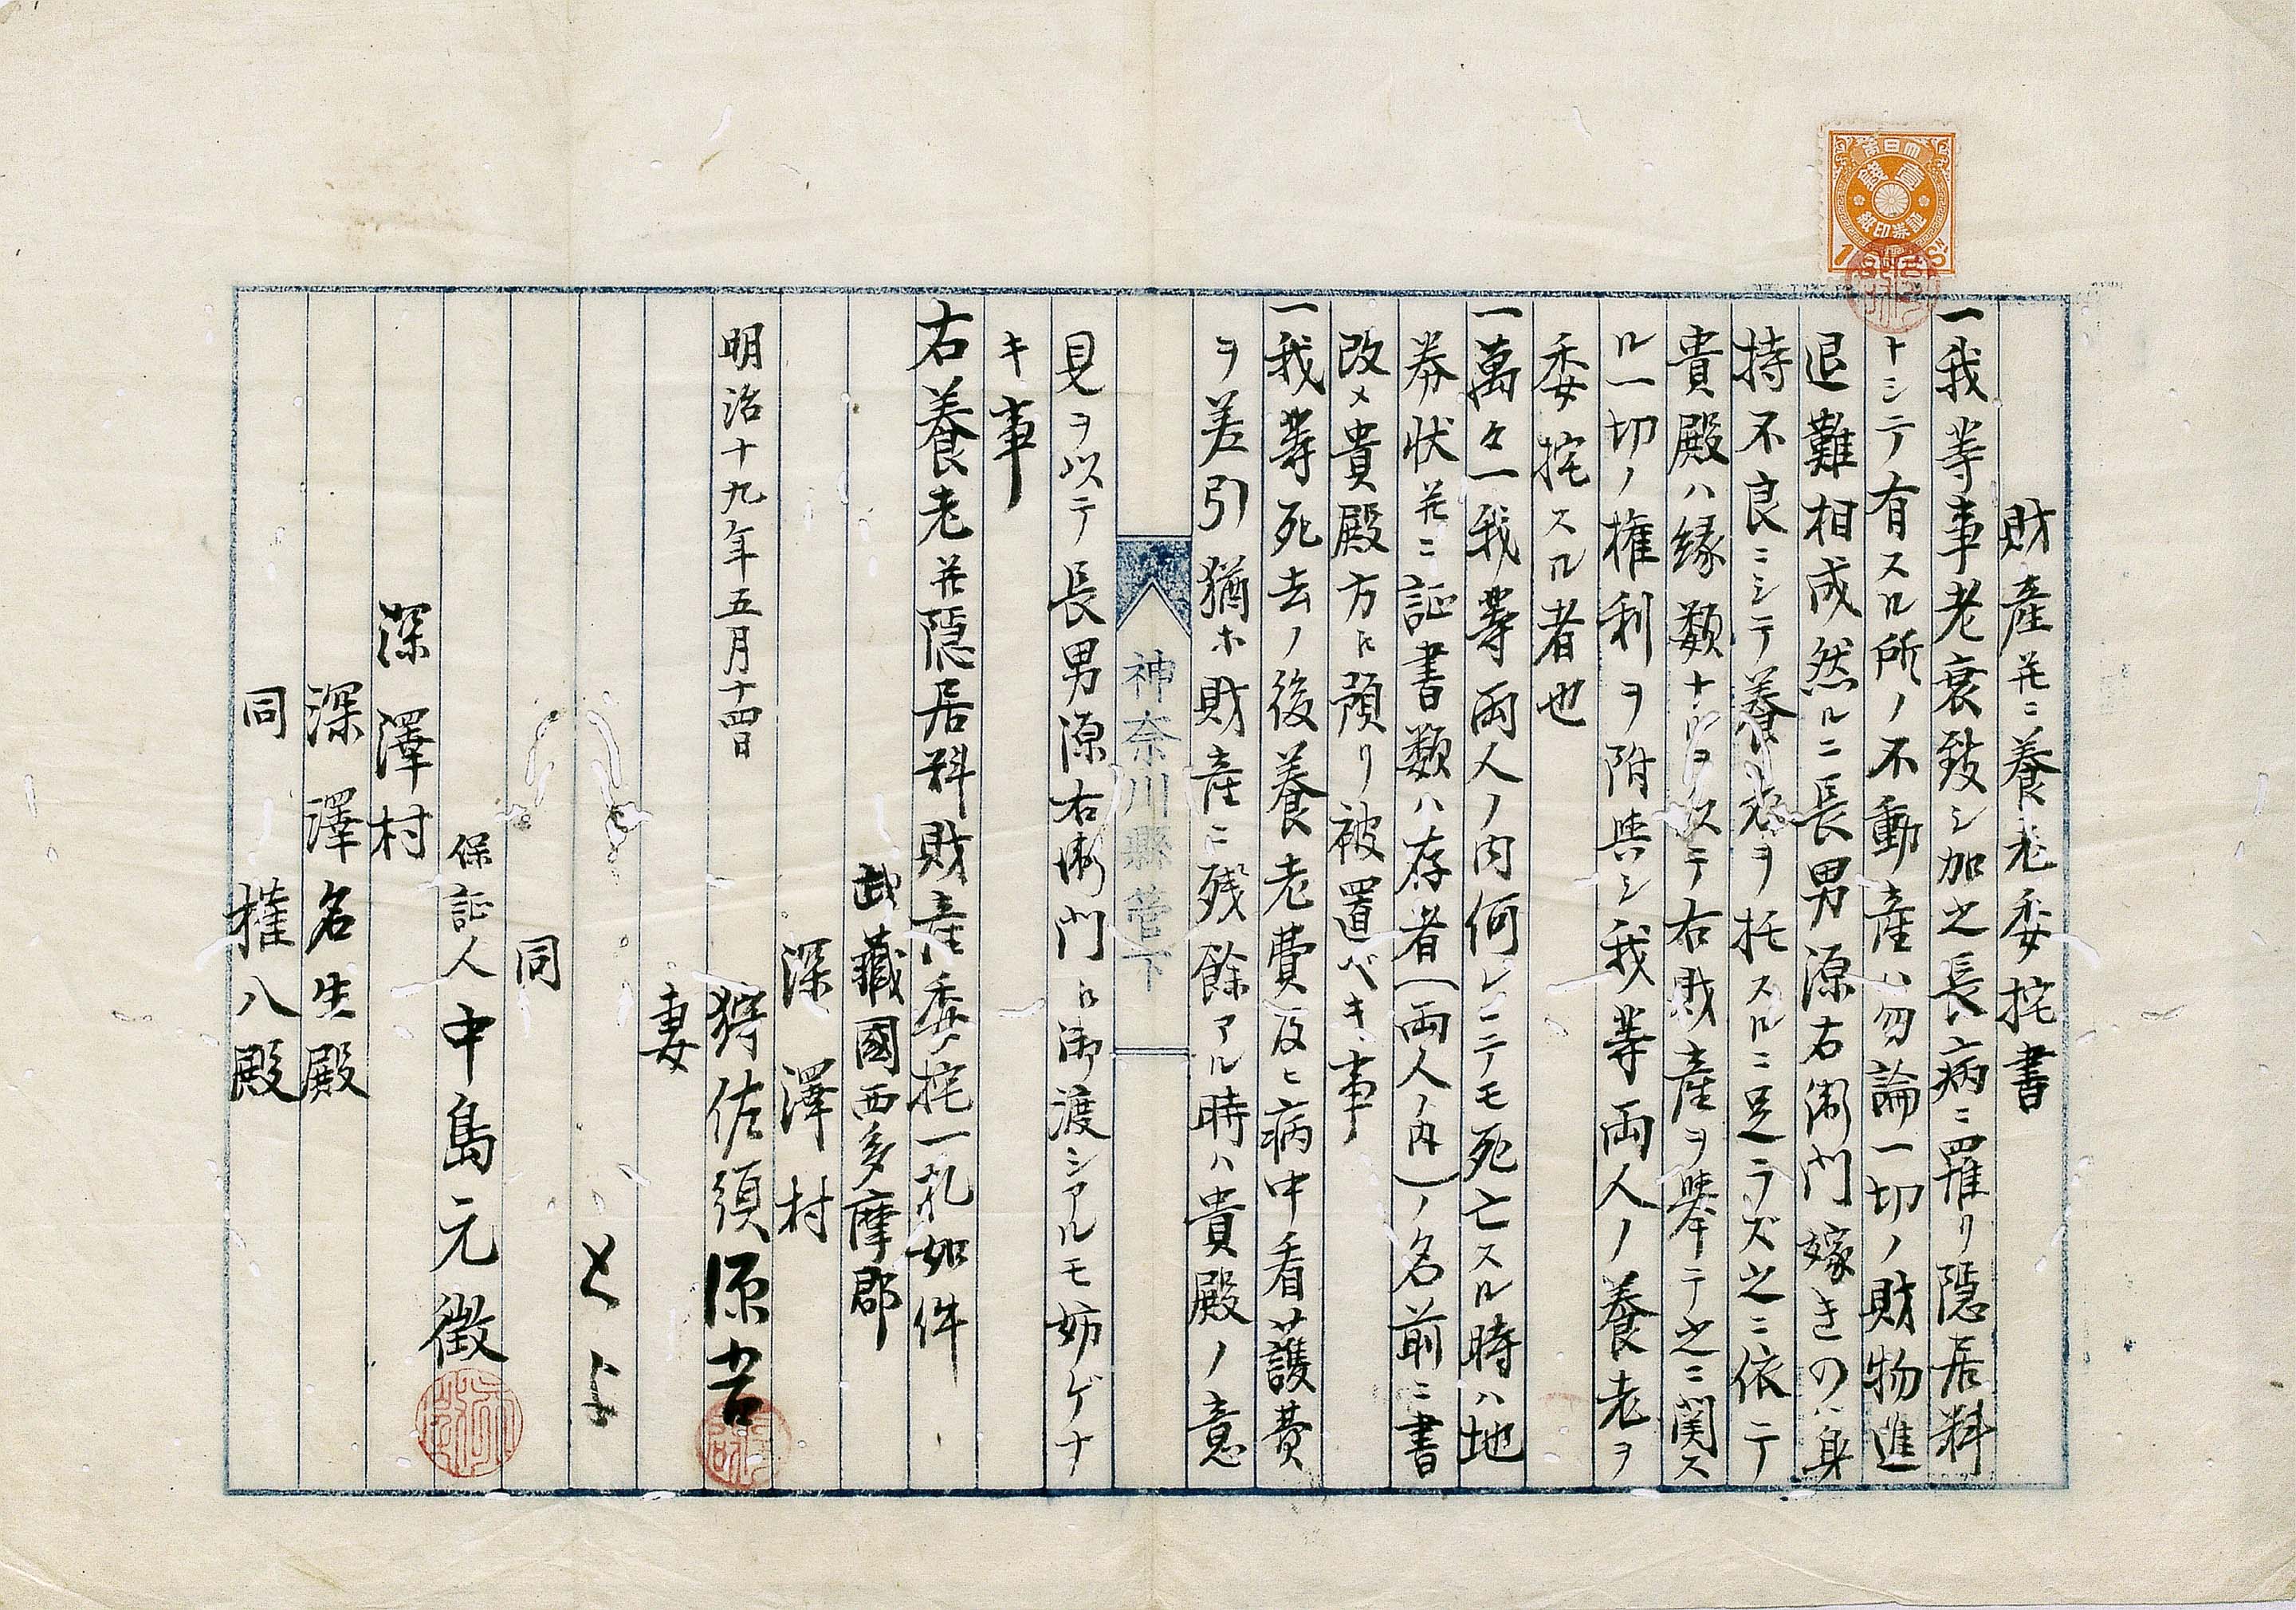 大日本帝国
壹錢
証券印紙
財産并ニ養老委㧌書
一我等事老衰致シ加之長病ニ罹リ隠居料
トシテ有スル所ノ不動産ハ勿論一切ノ財物進
退難相成然ルニ長男源右衛門嫁きのハ身
持不良ニシテ養老ヲ托スルニ足ラズ之ニ依テ
貴殿ハ縁類ナルヲ以テ右財産ヲ挙テ之ニ関ス
ル一切ノ権利ヲ附與シ我等両人ノ養老ヲ
委㧌スル者也
一萬々一我等両人ノ内何レニテモ死亡スル時ハ地
券状并ニ証書類ハ存者(両人ノ内)ノ名前ニ書
改メ貴殿方ヘ預リ被置ベキ事
一我等死去ノ後養老費及ヒ病中看護費
ヲ差引猶ホ財産ニ残餘アル時ハ貴殿ノ意
神奈川縣管下
見ヲ以テ長男源右衛門ヘ御渡シアルモ妨ゲナ
キ事
右養老并隠居料財産委㧌一札如件
武藏國西多摩郡
深澤村
明治十九年五月十四日
狩佐須源吉
妻
とよ
同
保証人 中島元徴
深澤村
深澤名生殿
同 権八殿